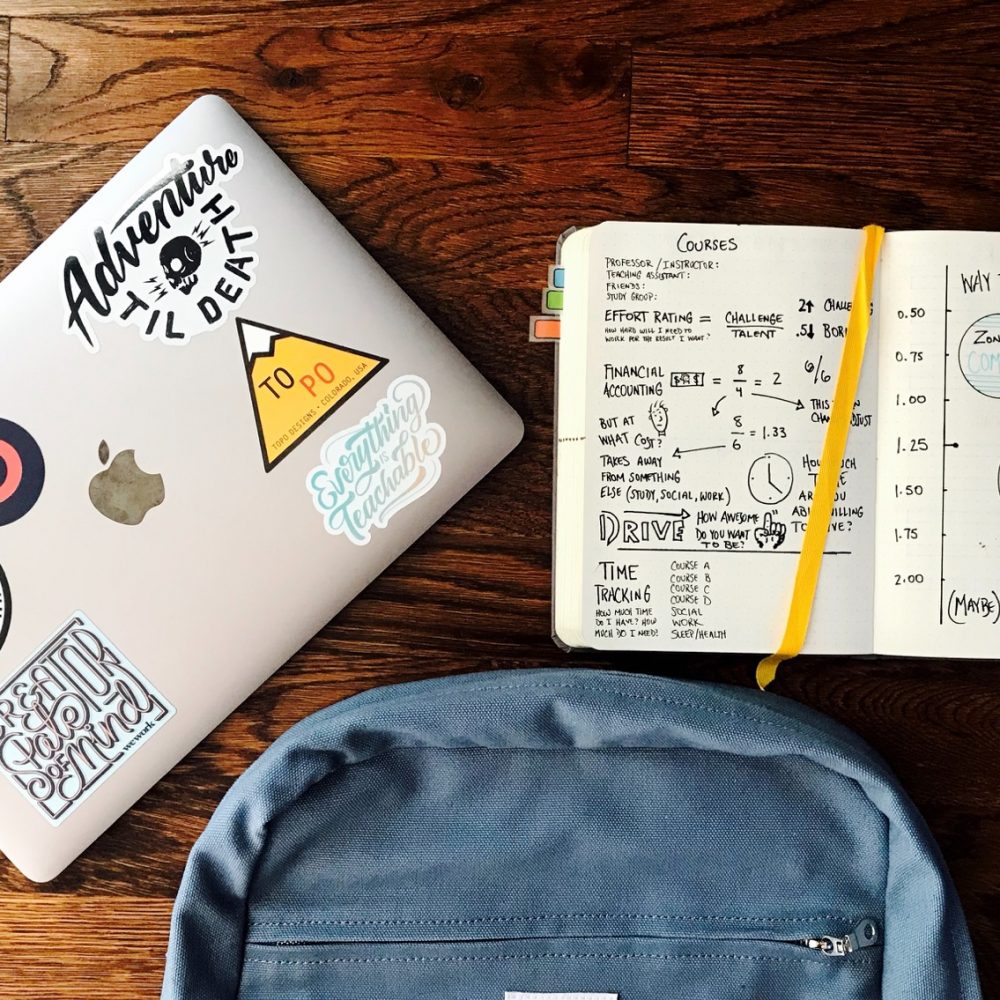 Adventure
TIL DEATH
TO PO
TOPO DESIGNS · COLORADO, USA
Everything
is
Teachable
CREATOR
State
OF Mind
wework
COURSES
PROFESSOR / INSTRUCTOR:
TEACHING ASSISTANT:
FRIENDS:
STUDY GROUP:
EFFORT RATING = CHALLENGE
TALENT
HOW HARD WILL I NEED TO
WORK FOR THE RESULT I WANT?
2↑
.5↓
FINANCIAL
ACCOUNTING
8
4
= 2
6/6
BUT AT
WHAT COST?
8
6
= 1.33
THIS
TAKES AWAY
FROM SOMETHING
ELSE (STUDY, SOCIAL, WORK)
ARE YOU
DRIVE
HOW AWESOME
DO YOU WANT
TO BE?
TIME
TRACKING
HOW MUCH TIME
DO I HAVE? HOW
MUCH DO I NEED?
COURSE A
COURSE B
COURSE C
COURSE D
SOCIAL
WORK
SLEEP/HEALTH
WAY
0.50
0.75
1.00
1.25
1.50
1.75
2.00
(MAYBE)